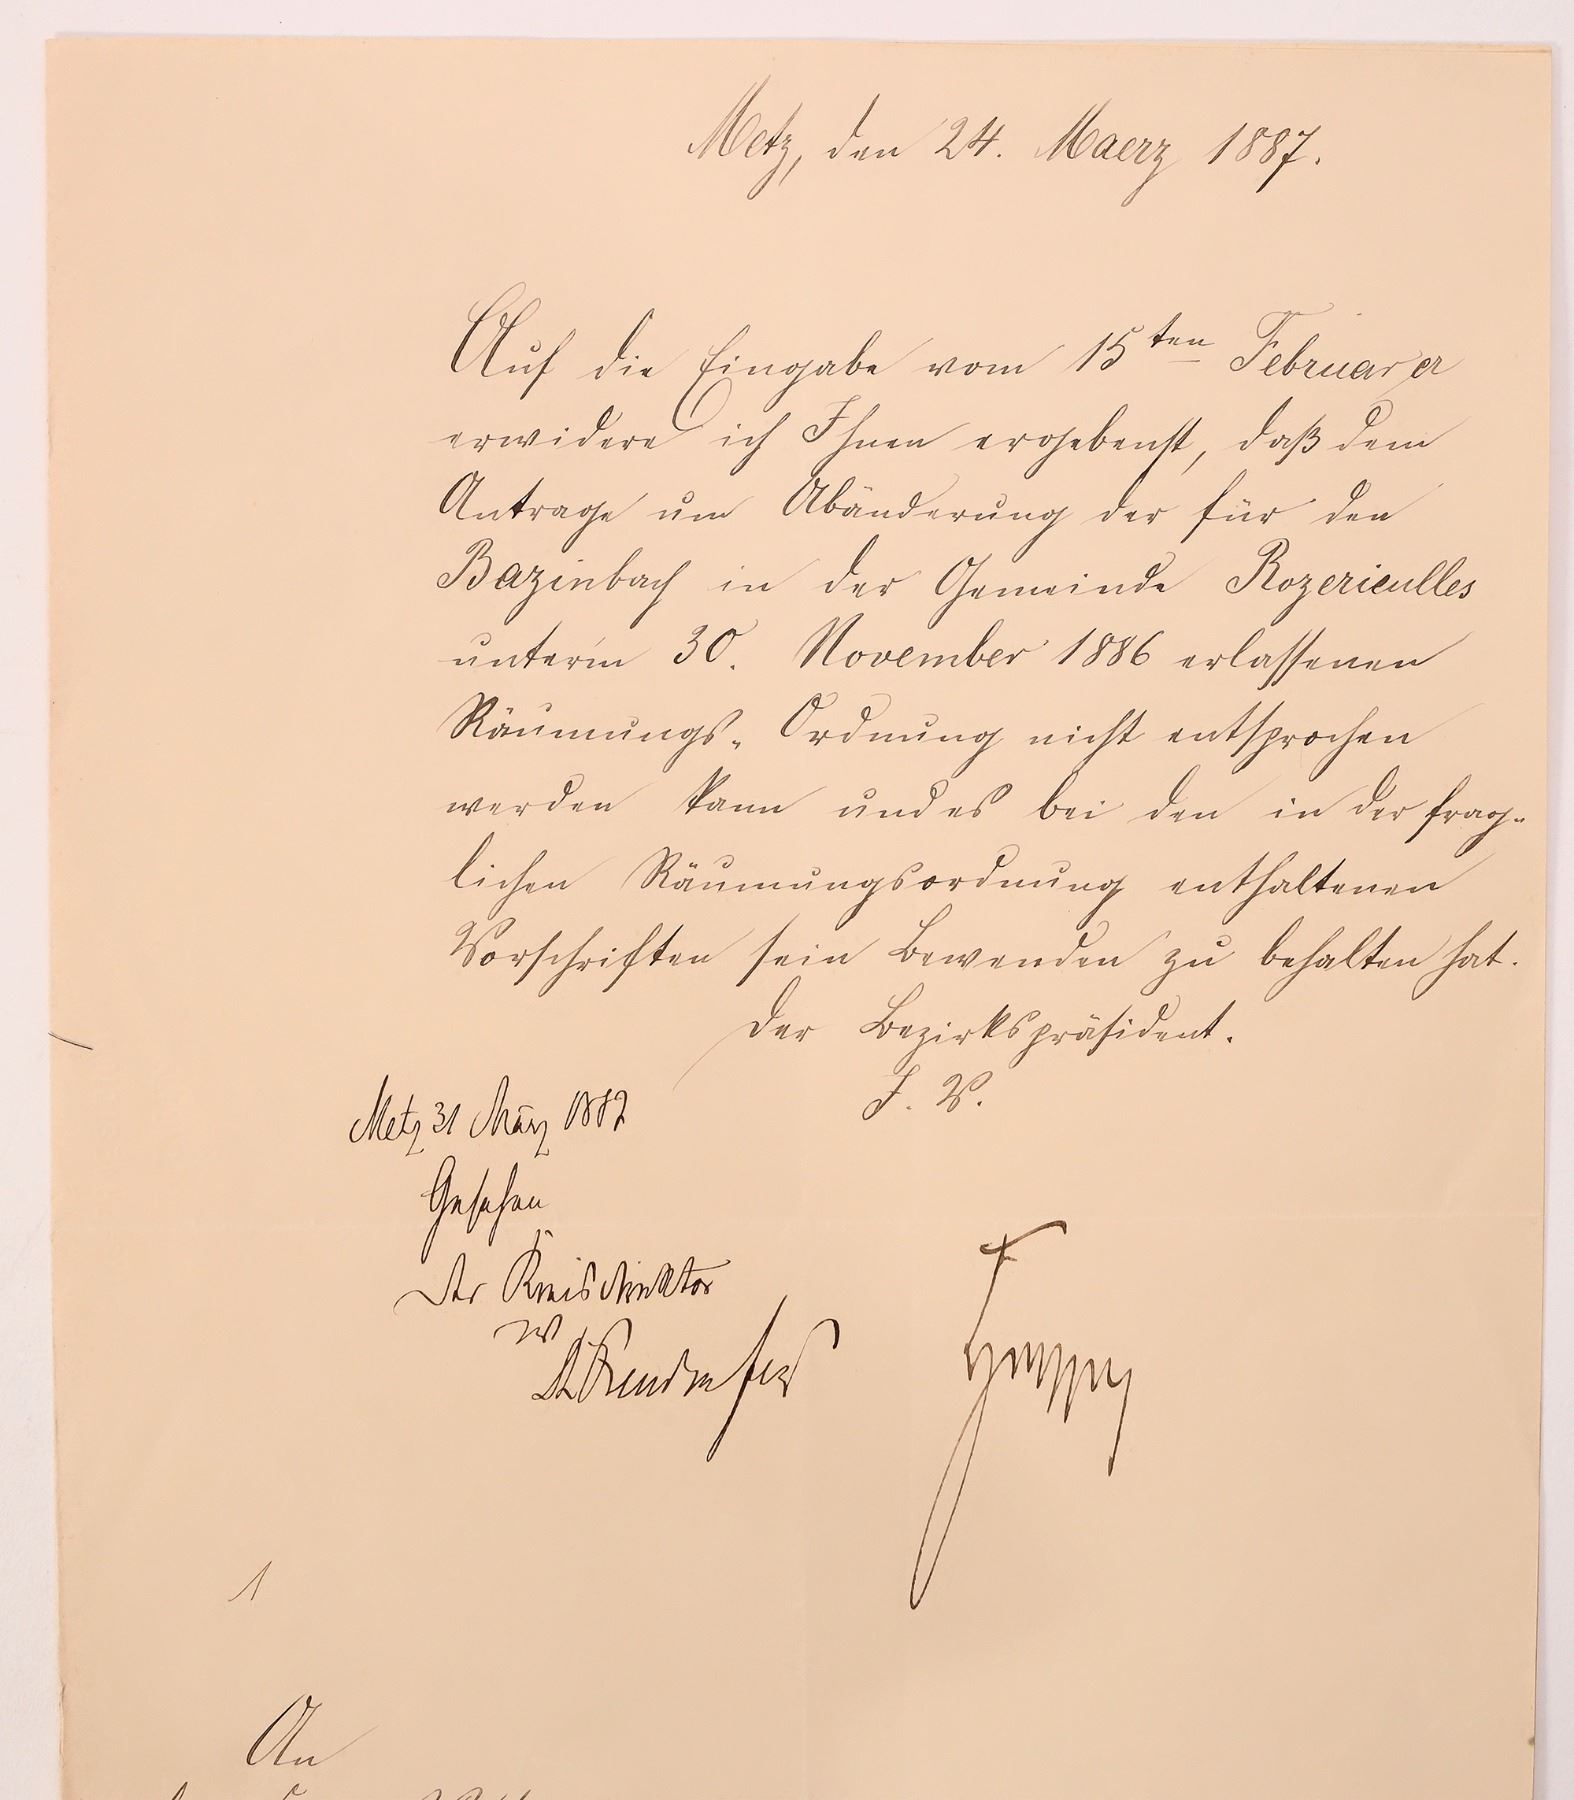 Metz, den 24. Maerz 1887.
Auf die Eingabe vom 15ten Februar cr
erwidere ich Ihnen ergebenst, daß dem
Antrage um Abänderung der für den
Bazinbach in der Gemeinde Rozerieulles
unterm 30. November 1886 erlassenen
Räumungs-Ordnung nicht entsprochen
werden kann und es bei den in der frag-
lichen Räumungsordnung enthaltenen
Vorschriften sein Bewenden zu behalten hat.
Der Bezirkspräsident.
J. V.
Metz 31 März 1887
Gesehen
Der Kreisdirektor
1
An